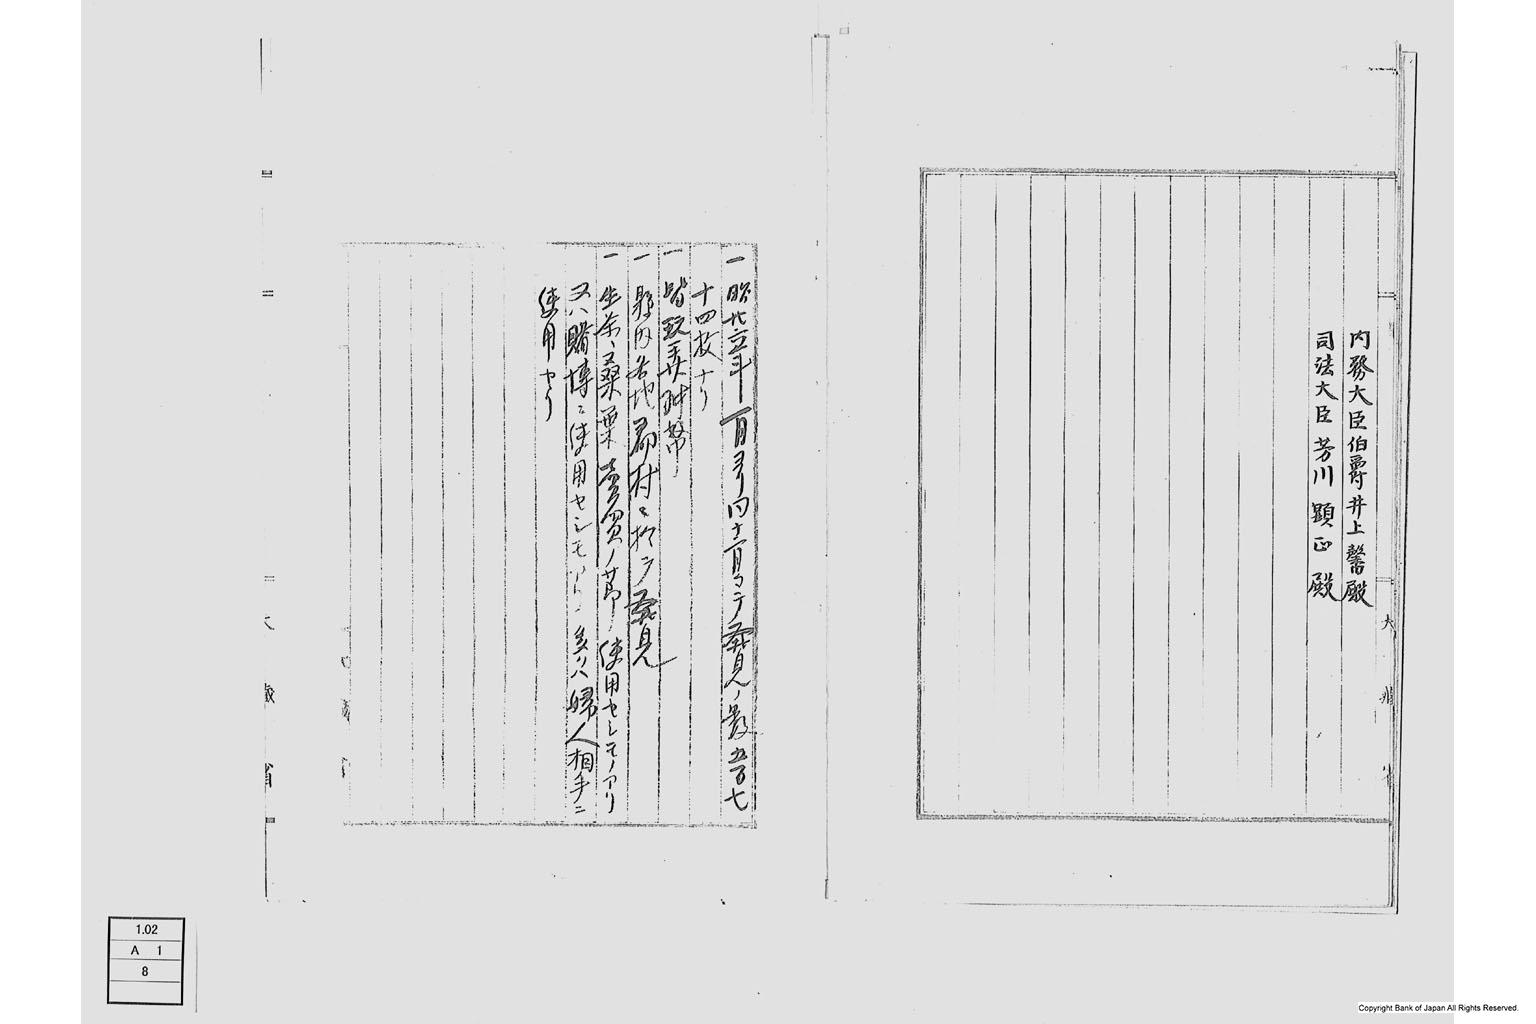 内務大臣伯爵井上馨殿
司法大臣 芳川 顕正 殿
大蔵省
一 昨廿六年一月ヨリ同十二月マテ発見ノ数五百七
十四枚ナリ
一 皆改造紙幣
一 県内各地郡村ニ於テ発見
一 生茶、又桑葉売買ノ節ノ使用セシモノアリ
又ハ賭博ニ使用セシモノアリ 多ハ婦人相手ニ
使用セリ
大蔵省
1.02
A 1
8
Copyright Bank of Japan All Rights Reserved.